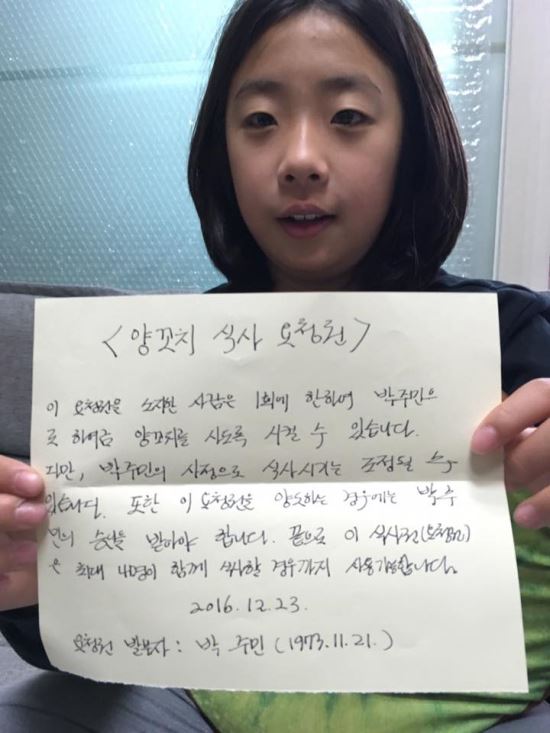 <양꼬치 식사 요청권>
이 요청권을 소지한 사람은 1회에 한하여 박주민으
로 하여금 양꼬치를 사도록 시킬 수 있습니다.
다만, 박주민의 사정으로 식사시기는 조정될 수
있습니다. 또한 이 요청권을 양도하는 경우에는 박주
민의 승낙을 받아야 합니다. 끝으로 이 식사권(요청권)
은 최대 4명이 함께 식사할 경우까지 사용가능합니다.
2016.12.23.
요청권 발부자 : 박 주민 (1973.11.21.)